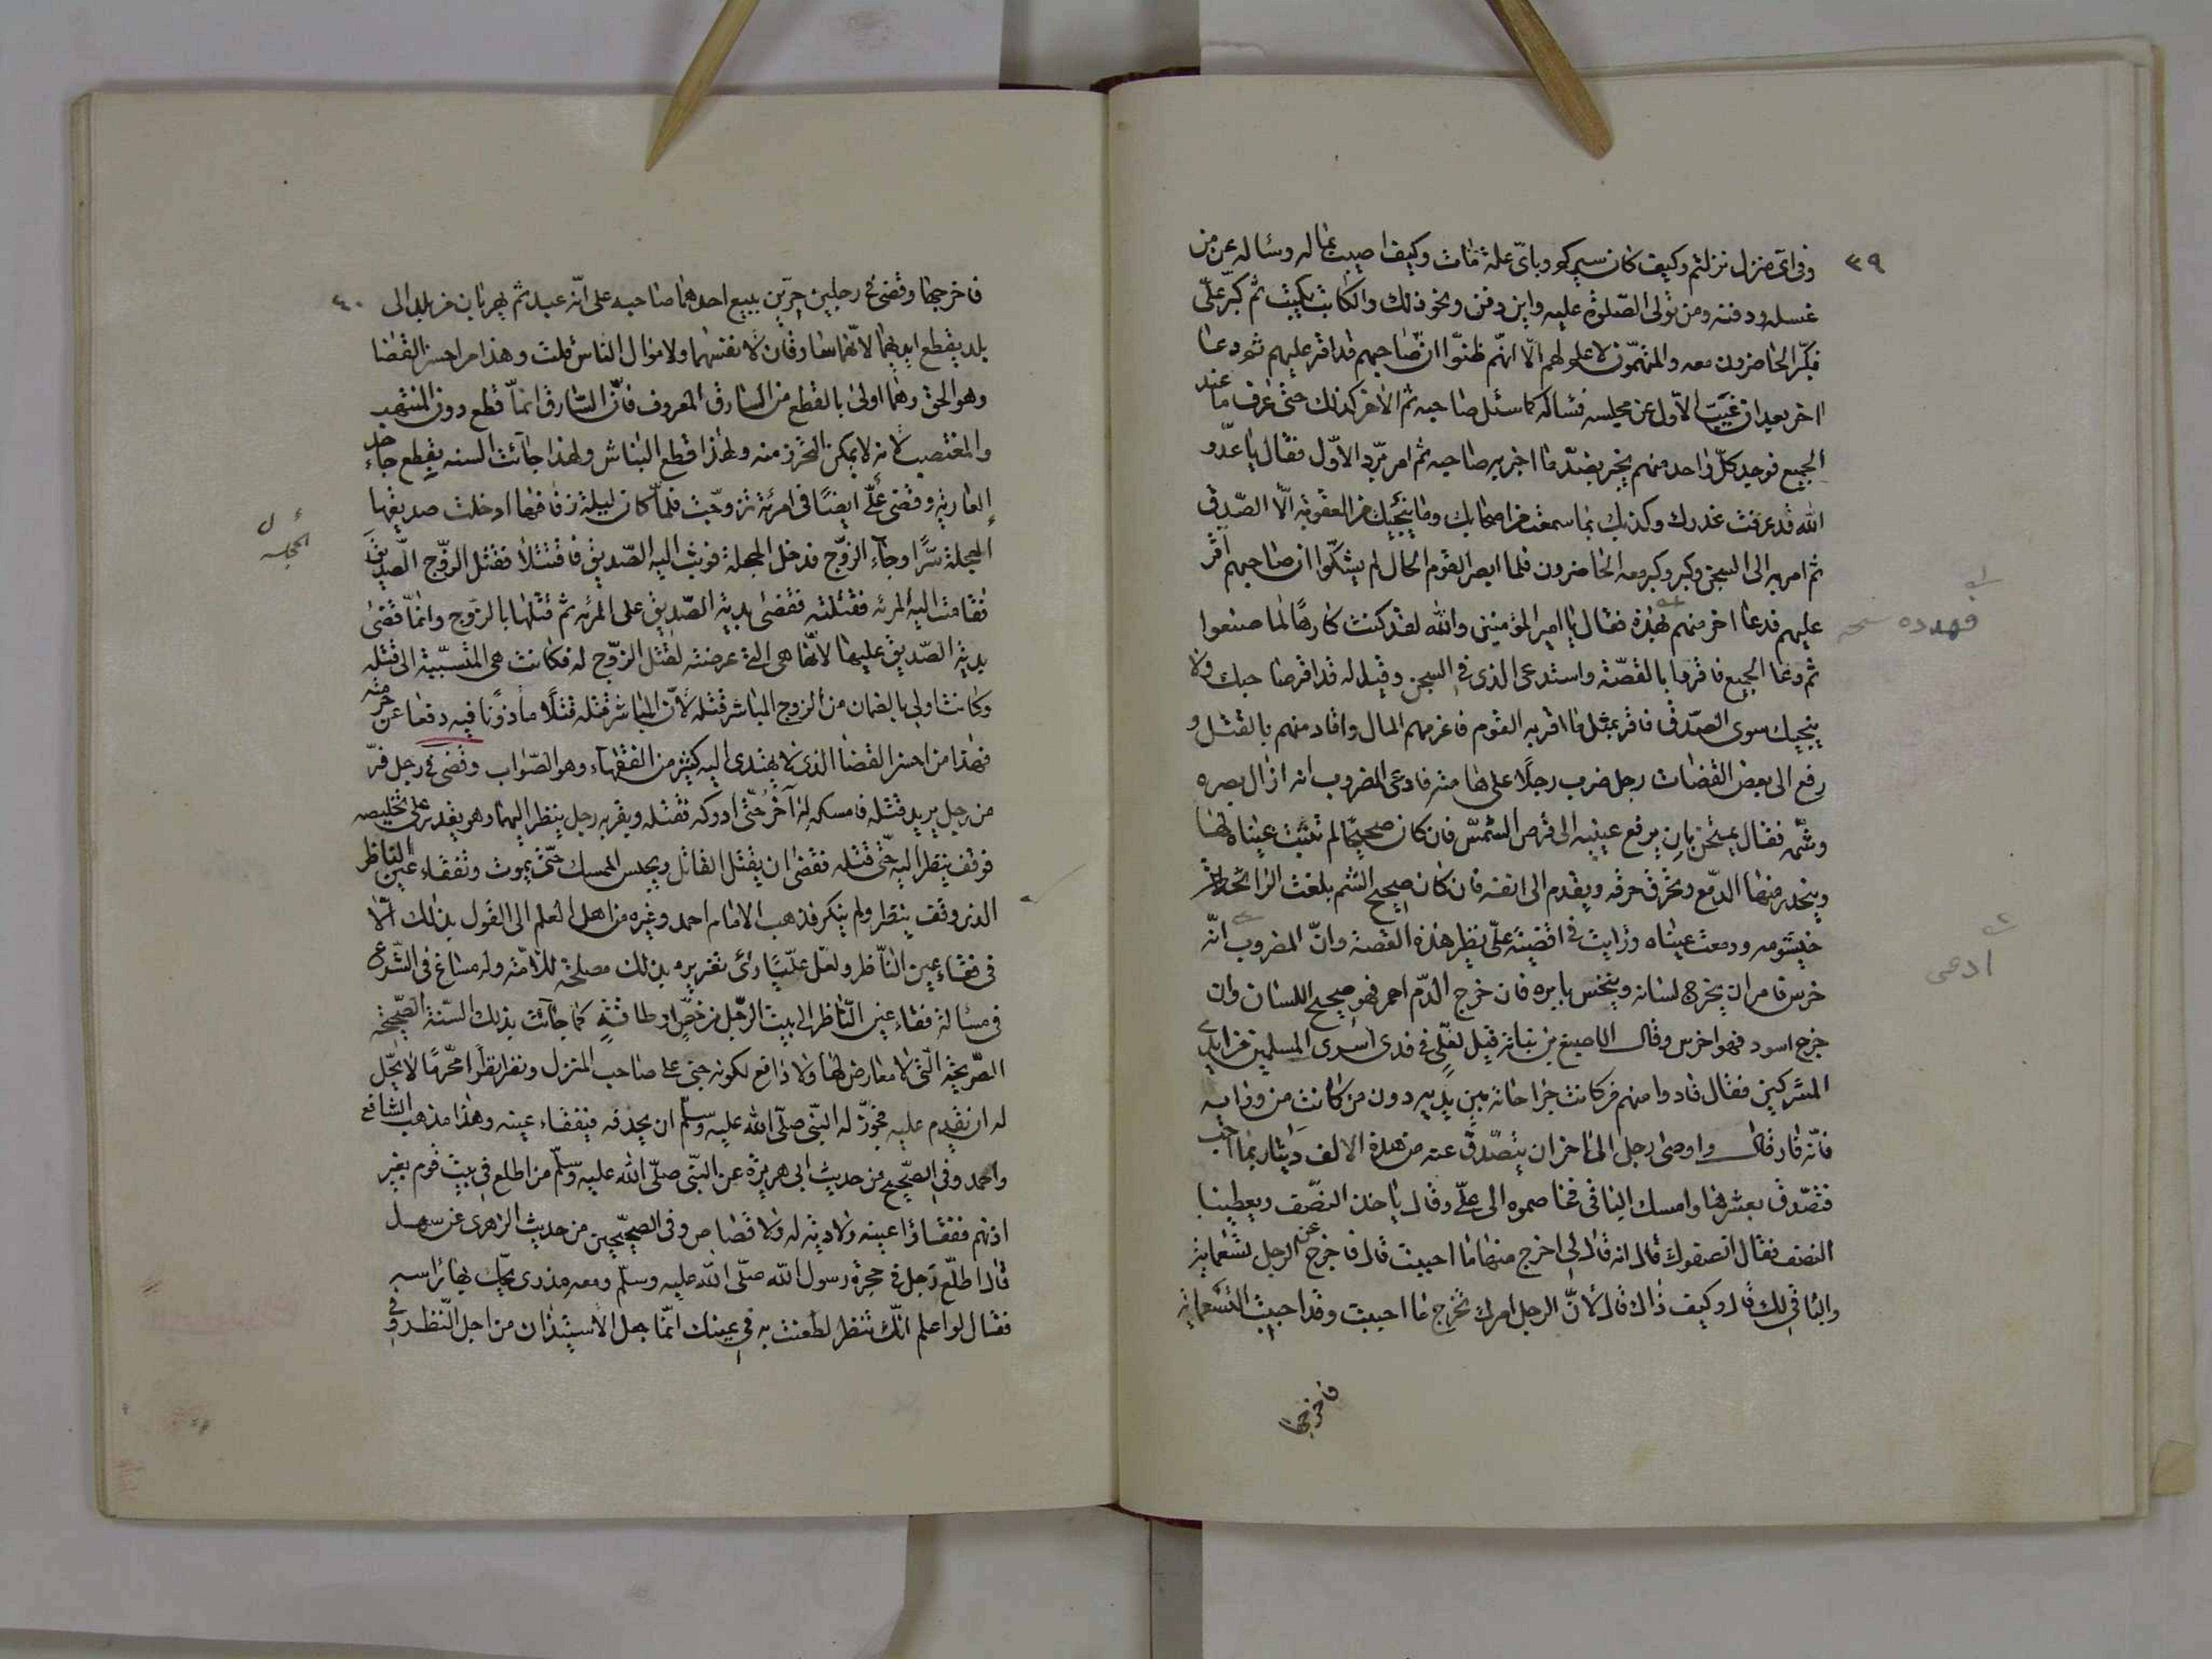 ٣٩
وفى اى منزل نزلتم وكيف كان سيركم وباىّ علة مات وكيف اصيب بماله وسأله عن من
غسله ودفنه ومن تولى الصّلوة عليه واين دفن ونحو ذلك والكاتب يكتب ثم كبّر علّى
فكبّر الحاضرون معه والمتهمون لا علم لهم الّا انهّم ظنوّا ان صاحبهم قد اقر عليهم ثم دعا
اخر بعد ان غيّب الاّول عن مجلسه فسأله كما سئل صاحبه ثم الاخر كذلك حتى عرف ما عند
الجميع فوجد كلّ واحد منهم يخبر بضدّ ما اخبر به صاحبه ثم امر برّد الاوّل فقال يا عدّو
الله قد عرفت غدرك وكذبك بما سمعت من اصحابك وما ينجيك من العقوبة الّا الصّدق
ثم امر به الى السجن وكبر وكبر معه الحاضرون فلما ابصر القوم الحال لم يشكّوا ان صاحبهم اقّر
عليهم فدعا اخر منهم فقال يا امير المؤمنين والله لقد كنت كارهًا لما صنعوا
ثم دعا الجميع فاقروا بالقصّة واستدعى الذى فى السجن وقيل له قد اقر صاحبك ولا
ينجيك سوى الصّدق فاقر بمثل ما اقر به القوم فاغرمهم المال واقاد منهم بالقتل و
رفع الى بعض القضات رجل ضرب رجلًا على هامته فادعى المضروب انه ازال بصره
وشّمه فقال يمتحن بان يرفع عينيه الى قرص الشمّس فان كان صحيحًا لم تثبت عيناه لها
وينحدر منها الدّمع وتحرق خرقه ويقدم الى انفه فان كان صحيح الشم بلغت الرائحة
خيشومه ودمعت عيناه ورايت فى اقضية علّى نظير هذه القصة وانّ المضروب انّه
خرس فامر ان يخرج لسانه وينخس بابره فان خرج الدّم احمر فهو صحيح اللسان وان
خرج اسود فهو اخرس وقال الاصبغ بن نباتة قيل لعلّى فى فدى اسرى المسلمين من ايدى
المشركين فقال فادوا منهم من كانت جراحاته بين يديه دون من كانت من ورائه
فانّه فار قال واوصى رجل الى اخر ان يتصّدق عنه من هذه الالف دينار بما احب
فتصّدق بعشرها وامسك الباقى فخاصموه الى علّى وقال ياخذ النصّف ويعطينا
النصف فقال انصفوك قال انه قال لى اخرج منها ما احببت قال فاخرج عن الرجل تسعماية
والباقى لك قال وكيف ذاك قال لانّ الرجل امرك تخرج ما احببت وقد احببت التسعماية
فاخرجها
فهدده
ادعى
٤٠
فاخرجها وقضى فى رجلين حرّين يبيع احدهما صاحبه على انّه عبد ثم يهربان من بلد الى
بلد بقطع ايديهما لانّهما سارقان لانفسهما ولاموال الناس قلت وهذا من احسن القضا
وهو الحق وهما اولى بالقطع من السارق المعروف فانّ السّارق انمّا قطع دون المنتهب
والمغتصب لانه لا يمكن التحّرز منه ولهذا قطع النباش ولهذا جائت السنه بقطع جاحد
العارية وقضى علّى ايضًا فى امرئة تزوّجت فلمّا كان ليلة زفافها ادخلت صديقها
الحجلة سّرًا وجاء الزوّج فدخل الحجلة فوثب اليه الصّديق فاقتتلا فقتل الزوّج الصّديق
فقامت اليه المرئه فقتلته فقضى بدية الصّديق على المرئه ثم قتلها بالزوج وانمّا قضى
بدية الصّديق عليها لانّها هى التى عرضته لقتل الزوّج له فكانت هى المتسبّبة الى قتله
وكانت اولى بالضمان من الزوج المباشر قتله لانّ المباشر قتله قتلًا ماذونًا فيه دفعًا عن حرمته
فهذا من احسن القضا الذى لا يهتدى اليه كثير من الفقهاء وهو الصّواب وقضى فى رجل فرّ
من رجل يريد قتله فامسكه له آخر حتّى ادركه فقتله وبقربه رجل ينظر اليهما وهو يقدر على تخليصه
فوقف ينظر اليه حتى قتله فقضى ان يقتل القاتل ويحبس الممسك حتّى يموت وتفقاء عين الناظر
الذى وقف ينظر ولم ينكر فذهب الامام احمد وغيره من اهل العلم الى القول بذلك الّا
فى فقاء عين النّاظر ولعّل علّيًا رأى تعزيره بذلك مصلحة للامّة وله مساغ فى الشّرع
فى مسالة فقاء عين النّاظر الى بيت الرّجل من خصّ او طاقةٍ كما جائت بذلك السّنة الصّحيحة
الصّريحة الّتى لا معارض لها ولا دافع لكونه جنى على صاحب المنزل ونظر نظرًا محّرمًا لا يحّل
له ان يقدم عليه فجوّز له النبّى صلّى الله عليه وسلّم ان يحذفه فيفقاء عينه وهذا مذهب الشافعى
واحمد وفى الصحّيح من حديث ابى هريرة عن النبّى صلّى الله عليه وسلّم من اطلع فى بيت قوم بغير
اذنهم ففقاؤا عينه ولا دية له ولا قصاص وفى الصحيحّين من حديث الزهرى عن سهل
قال اطلّع رجل فى حجرة رسول الله صلّى الله عليه وسلّم ومعه مدرى يحّك بها رأسه
فقال لو اعلم انّك تنظر لطعنت به فى عينك انّما جعل الاستيذان من اجل النّظر وفى